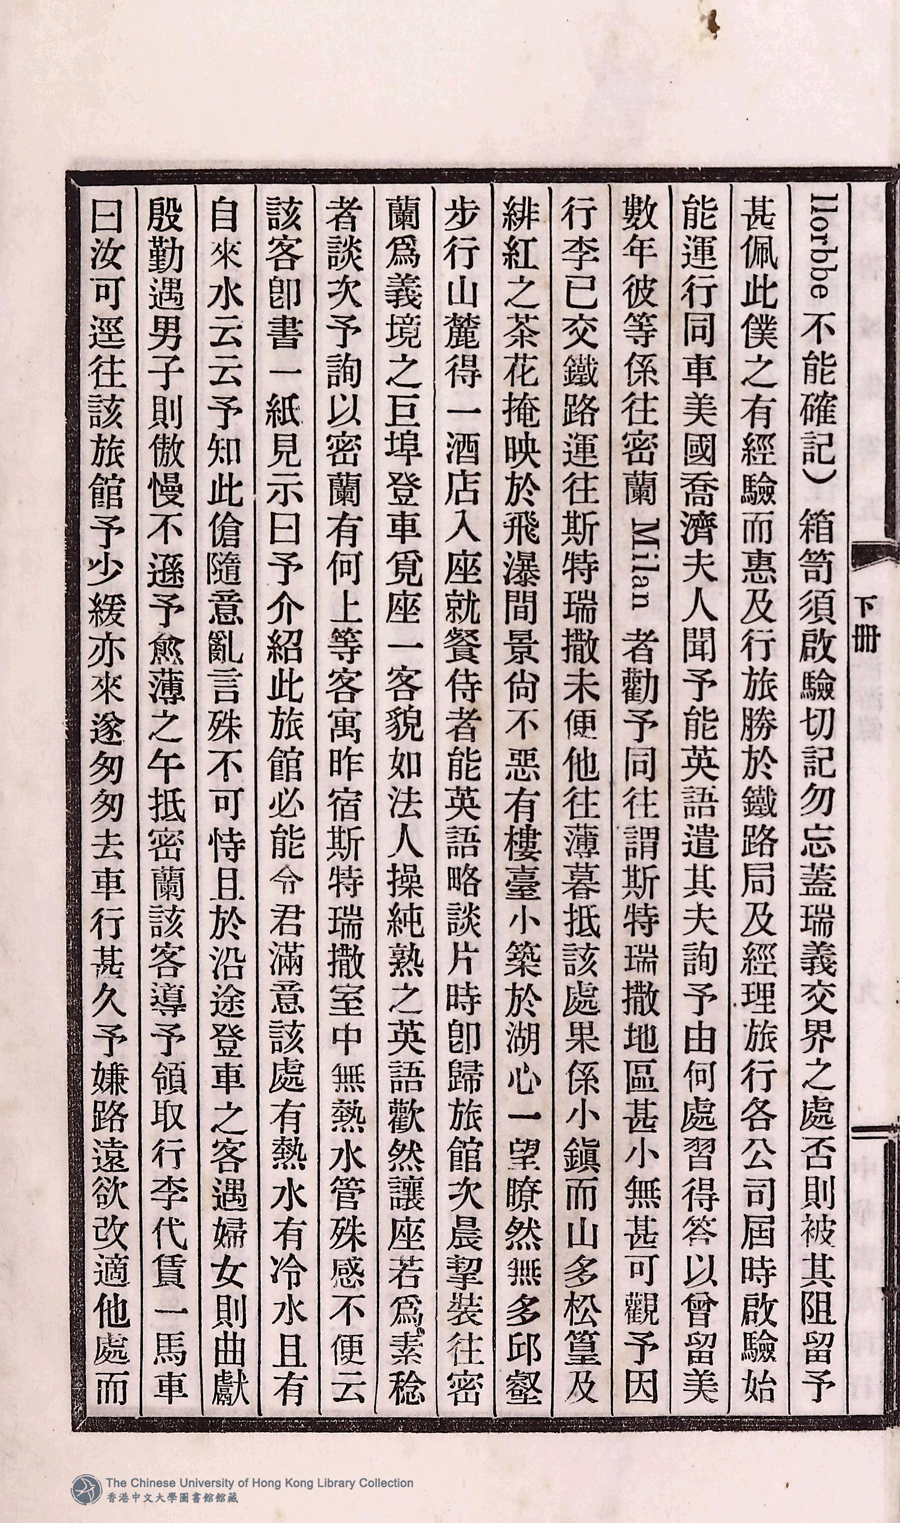 Horbbe 不能確記）箱笥須啟驗切記勿忘蓋瑞義交界之處否則被其阻留予
甚佩此僕之有經驗而惠及行旅勝於鐵路局及經理旅行各公司屆時啟驗始
能運行同車美國喬濟夫人聞予能英語遣其夫詢予由何處習得答以曾留美
數年彼等係往密蘭 Milan 者勸予同往謂斯特瑞撒地區甚小無甚可觀予因
行李已交鐵路運往斯特瑞撒未便他往薄暮抵該處果係小鎭而山多松篁及
緋紅之茶花掩映於飛瀑間景尙不惡有樓臺小築於湖心一望瞭然無多邱壑
步行山麓得一酒店入座就餐侍者能英語略談片時卽歸旅館次晨挈裝往密
蘭爲義境之巨埠登車覓座一客貌如法人操純熟之英語歡然讓座若爲素稔
者談次予詢以密蘭有何上等客寓昨宿斯特瑞撒室中無熱水管殊感不便云
該客卽書一紙見示曰予介紹此旅館必能令君滿意該處有熱水有冷水且有
自來水云云予知此傖隨意亂言殊不可恃且於沿途登車之客遇婦女則曲獻
殷勤遇男子則傲慢不遜予愈薄之午抵密蘭該客導予領取行李代賃一馬車
曰汝可逕往該旅館予少緩亦來遂匆匆去車行甚久予嫌路遠欲改適他處而
下冊
The Chinese University of Hong Kong Library Collection
香港中文大學圖書館館藏